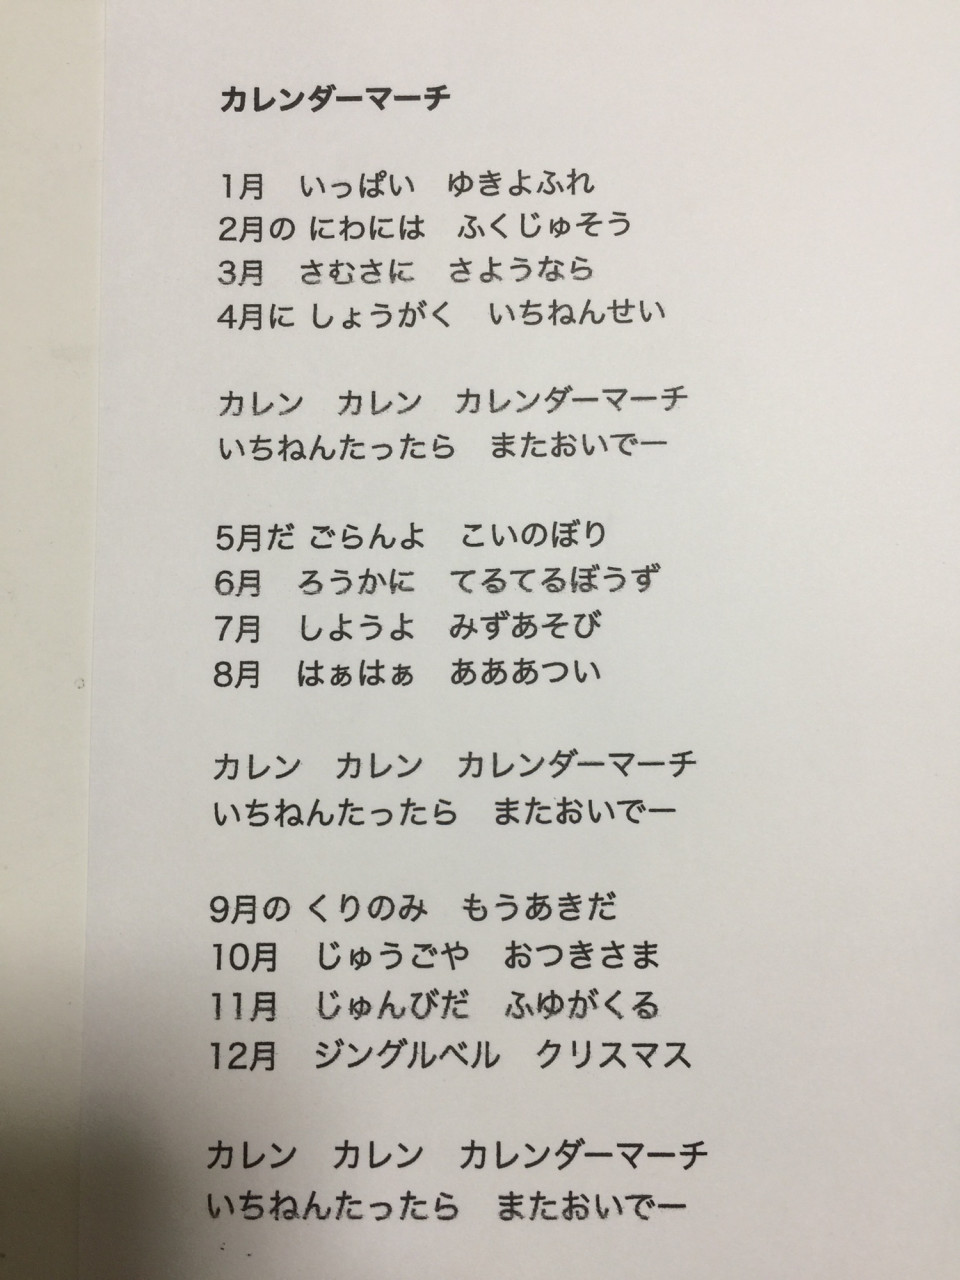 カレンダーマーチ
1月　いっぱい　ゆきよふれ
2月の にわには　ふくじゅそう
3月　さむさに　さようなら
4月に しょうがく　いちねんせい
カレン　カレン　カレンダーマーチ
いちねんたったら　またおいでー
5月だ ごらんよ　こいのぼり
6月　ろうかに　てるてるぼうず
7月　しようよ　みずあそび
8月　はぁはぁ　あああつい
カレン　カレン　カレンダーマーチ
いちねんたったら　またおいでー
9月の くりのみ　もうあきだ
10月　じゅうごや　おつきさま
11月　じゅんびだ　ふゆがくる
12月　ジングルベル　クリスマス
カレン　カレン　カレンダーマーチ
いちねんたったら　またおいでー